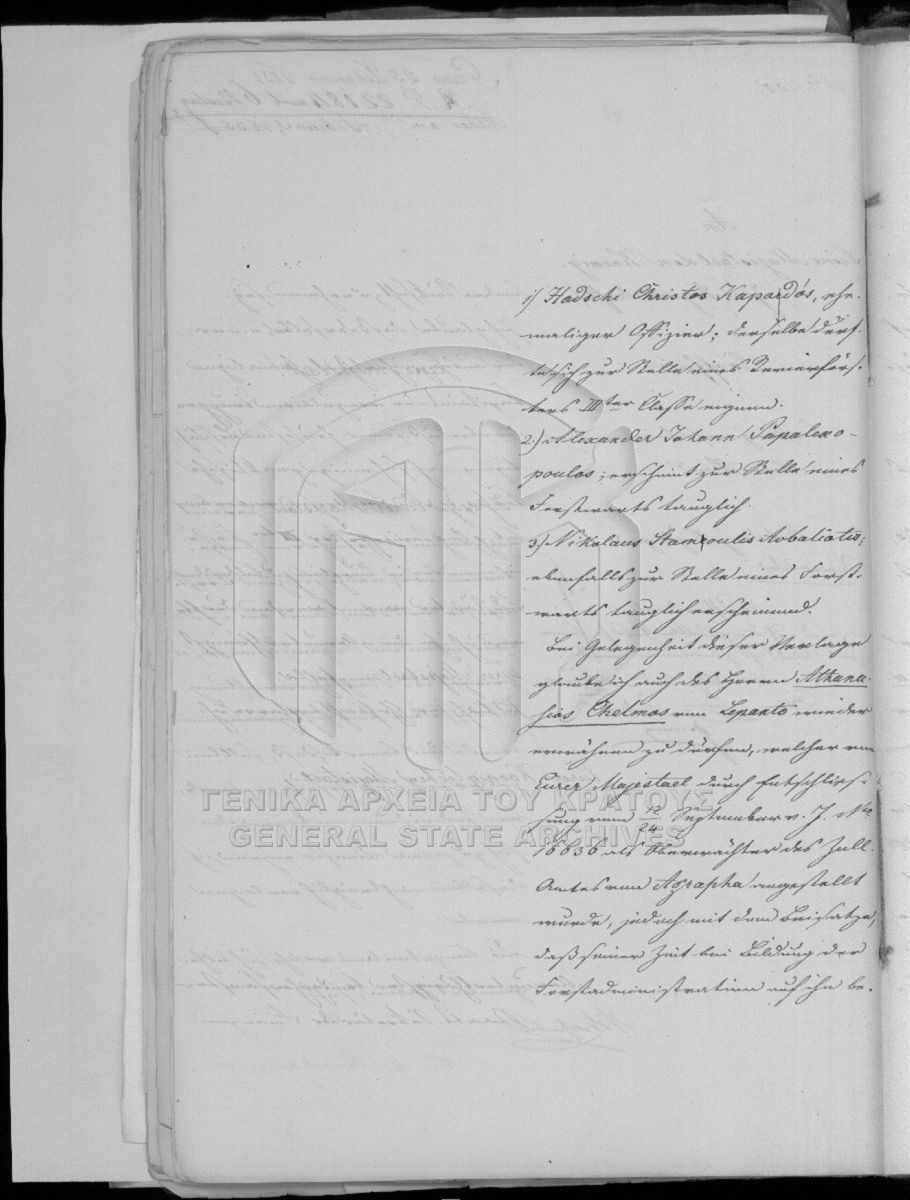 1) Hadschi Christos Kapardós, ehe-
maliger Offizier; derselbe dürf-
te sich zur Stelle eines Revierförs-
ters III ter Classe eignen.
2.) Alexander Johann Papalexo-
poulos; erscheint zur Stelle eines
Forstwarts tauglich.
3.) Nikolaus Stamoulis Aobaliotis;
ebenfalls zur Stelle eines Forst-
warts tauglich erscheinend.
Bei Gelegenheit dieser Vorlage
glaube ich auch des Herrn Athana-
sios Chelmos von Lepanto wieder
erwähnen zu dürfen, welcher von
Eurer Majestaet durch Entschlies-
sung vom 12/24 September v. J. No
16636 als Oberwächter des Zoll-
Amtes von Agrapha angestellt
wurde, jedoch mit dem Beisatze,
daß seiner Zeit bei Bildung der
Forstadministration auf ihn be-
ΓΕΝΙΚΑ ΑΡΧΕΙΑ ΤΟΥ ΚΡΑΤΟΥΣ
GENERAL STATE ARCHIVES